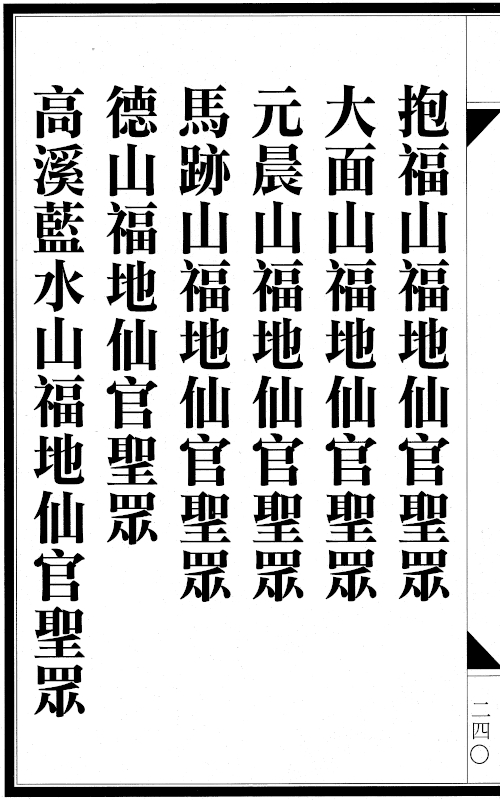 抱福山福地仙官聖眾
大面山福地仙官聖眾
元晨山福地仙官聖眾
馬跡山福地仙官聖眾
德山福地仙官聖眾
高溪藍水山福地仙官聖眾
二四〇